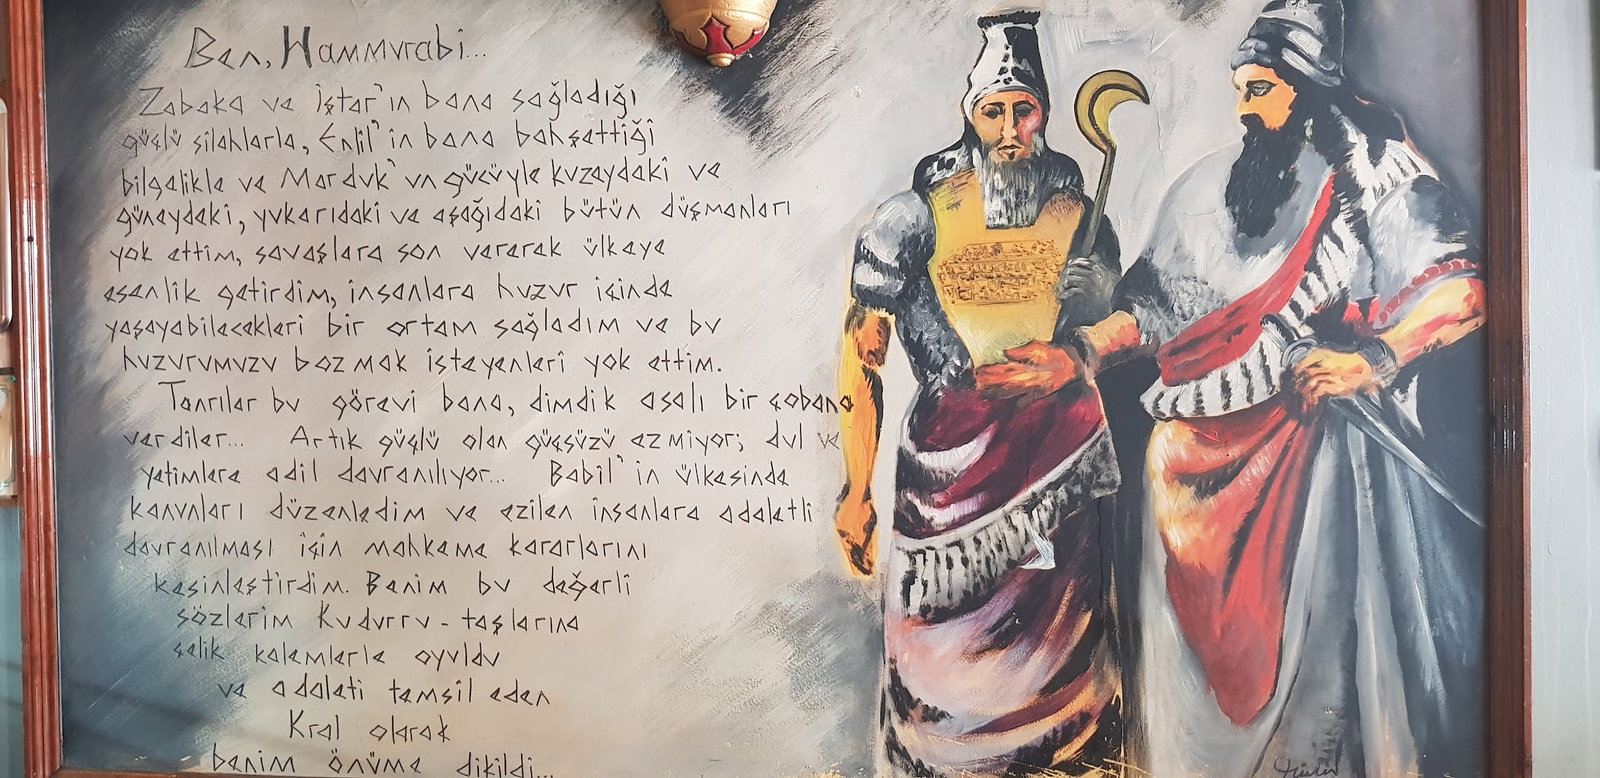 Ben, Hammurabi...
Zabaka ve İştar'ın bana sağladığı
güçlü silahlarla, Enlil'in bana bahşettiği
bilgelikle ve Marduk'un gücüyle kuzeydeki ve
güneydeki, yukarıdaki ve aşağıdaki bütün düşmanları
yok ettim, savaşlara son vererek ülkeye
esenlik getirdim, insanlara huzur içinde
yaşayabilecekleri bir ortam sağladım ve bu
huzurumuzu bozmak isteyenleri yok ettim.
Tanrılar bu görevi bana, dimdik asalı bir çobana
verdiler... Artık güçlü olan güçsüzü ezmiyor; dul ve
yetimlere adil davranılıyor... Babil'in ülkesinde
kanunları düzenledim ve ezilen insanlara adaletli
davranılması için mahkeme kararlarını
kesinleştirdim. Benim bu değerli
sözlerim Kudurru-taşlarına
çelik kalemlerle oyuldu
ve adaleti temsil eden
Kral olarak
benim önüme dikildi...